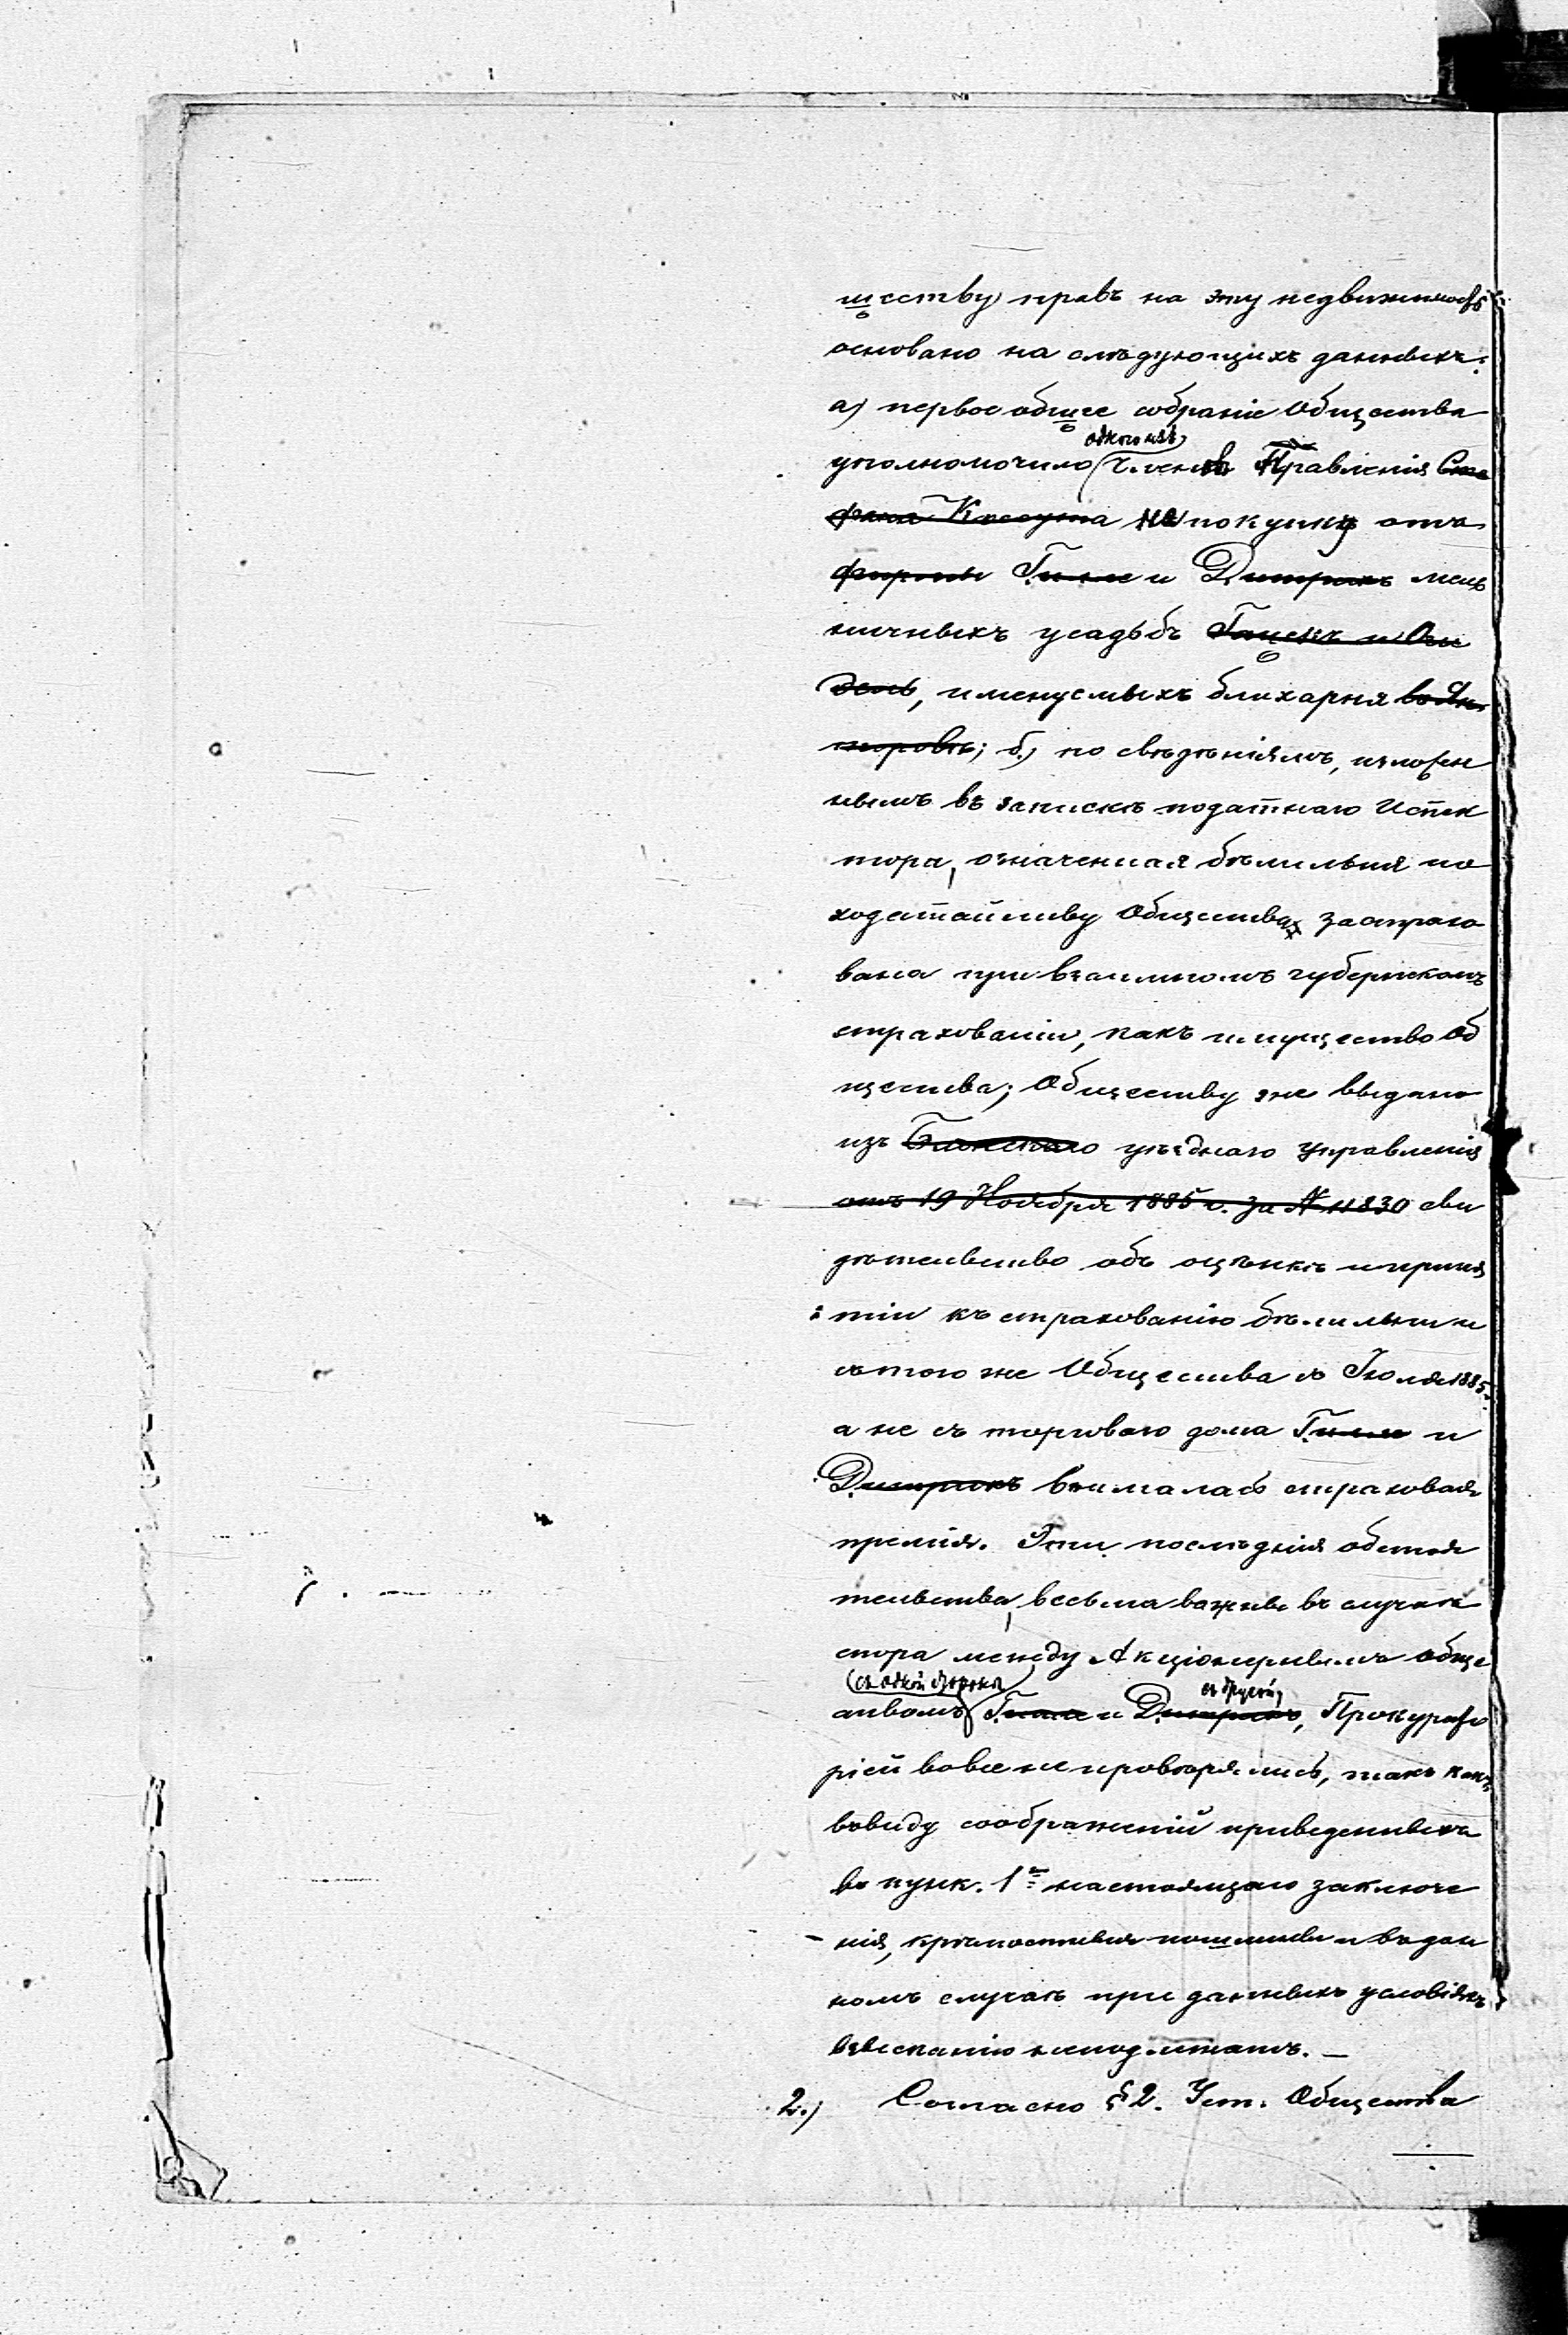 ществу правъ на эту недвижимость
основано на слѣдующихъ данныхъ:
а) первое общее собраніе Общества
одного изъ
уполномочило членовъ Правленія Сте
фана Коссута на покупку отъ
фирмы Гилле и Дитрихъ меш
ничныхъ усадьбъ
дель, именуемыхъ блихарня
б.) по свѣдѣніямъ, изложен
нымъ въ запискѣ податнаго Испек
тора, означенная бѣлильня по
ходатайству Общества застрахо
вана при взаимномъ губернскомъ
страхованіи, какъ имущество Об
щества; Обществу же выдано
изъ Блонскаго уѣзднаго Управленія
отъ 19 Ноября 1885 г. за № 11830 сви
дѣтельство объ оцѣнкѣ и приня
тіи къ страхованію бѣлильни и
съ того же Общества съ Іюля 1885 г.
а не съ торговаго дома Гилле и
Дитрихъ взималась страховая
премія. Эти послѣднія обстоя
тельства, весьма важныя въ случаѣ
спора между Акціонернымъ обще
съ одной стороны съ другой,
ствомъ Гилле и Дитрихъ, Прокурато
ріей вовсе не провѣрялись, такъ какъ
ввиду соображеній приведенныхъ
въ пунк. 1мъ настоящаго заключе
нія, крѣпостныя пошлины въ дан
номъ случаѣ при данныхъ условіяхъ
взысканію неподлежатъ. —
2.) Согласно § 2. Уст. Общества